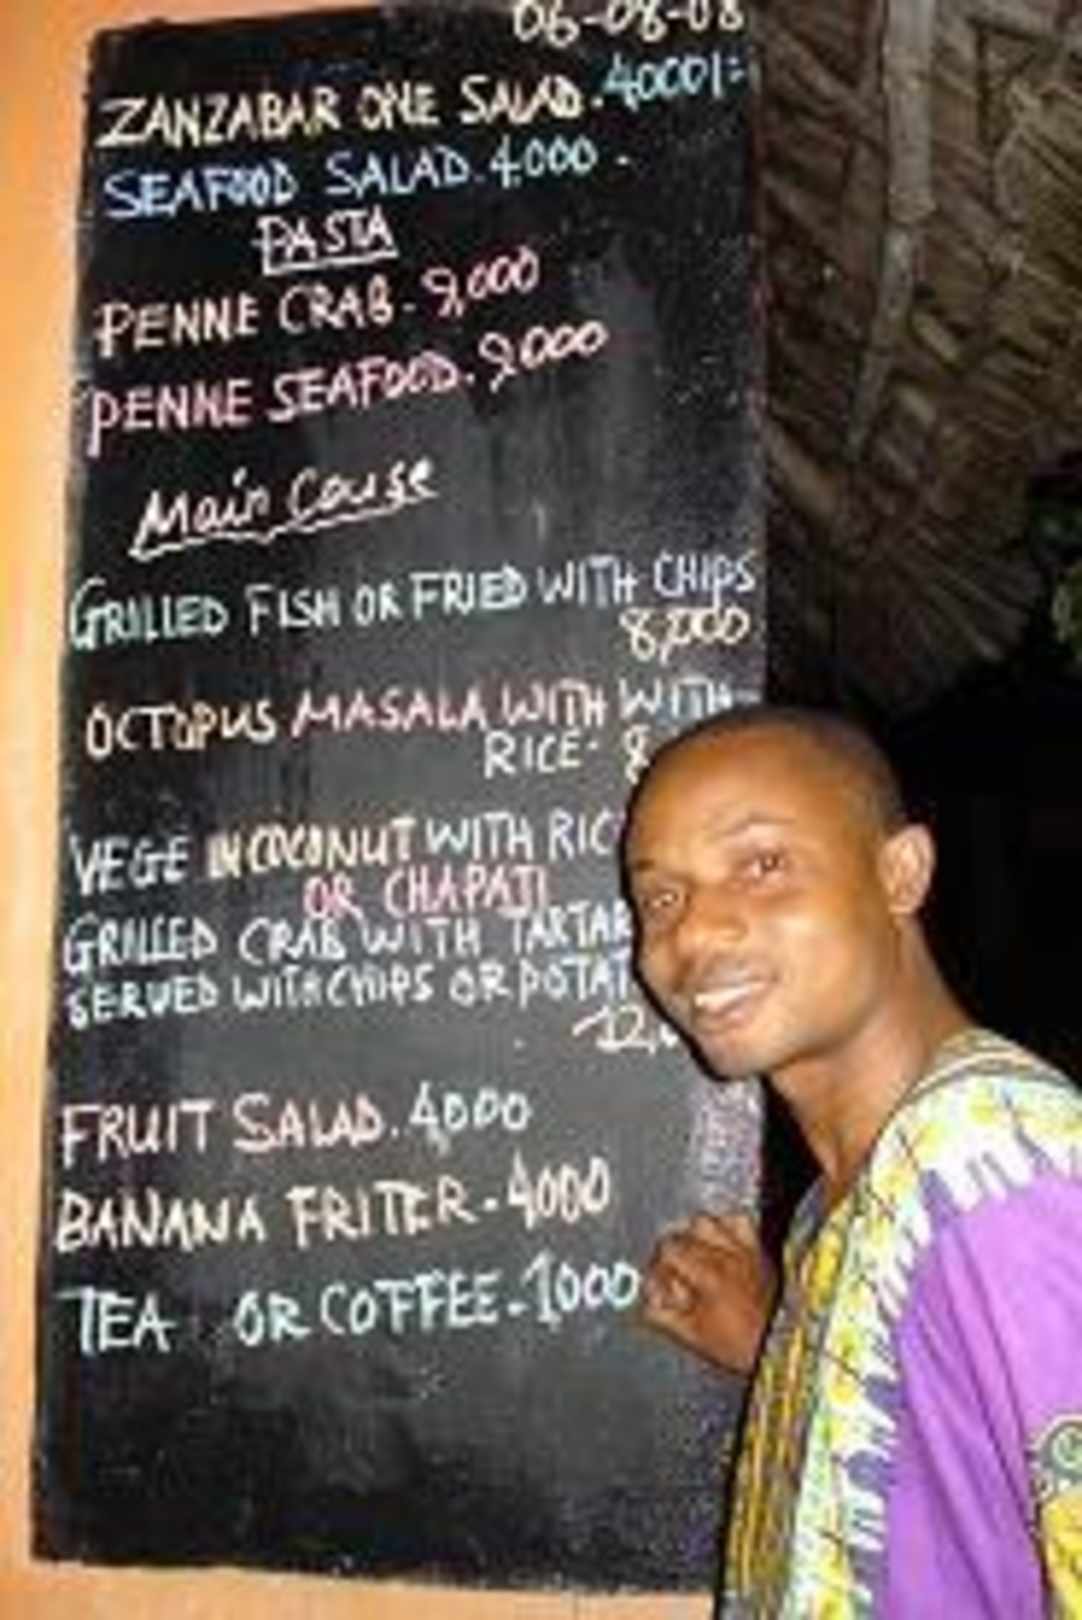 06-08-08
ZANZABAR ONE SALAD. 4000/=
SEAFOOD SALAD. 4000 -
PASTA
PENNE CRAB - 9,000
PENNE SEAFOOD. 9,000
Main Couse
GRILLED FISH OR FRIED WITH CHIPS
8,000
OCTOPUS MASALA WITH WITH
RICE - 8
VEGE IN COCONUT WITH RIC
OR CHAPATI
GRILLED CRAB WITH TARTAR
SERVED WITH CHIPS OR POTAT
12,
FRUIT SALAD. 4000
BANANA FRITER - 4000
TEA OR COFFEE - 1000